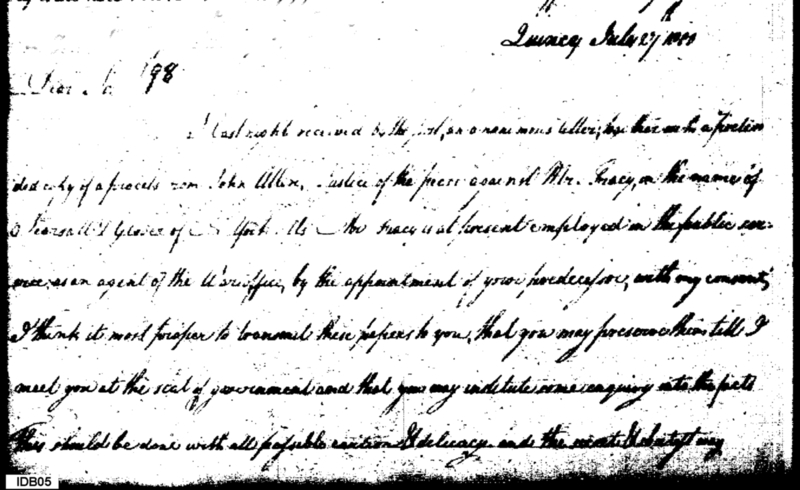 Quincy July 27th 1800
Dear Sir 98
I last night received by the post, an anonymous letter, together with a preten
ded copy of a process from John Allen, Justice of the peace against Mr. Tracy, in the name of
Pearsall & Glover of N York. As Mr Tracy is at present employed in the public ser-
vice, as an agent of the War office, by the appointment of your predecessor, with my consent,
I think it most proper to transmit these papers to you, that you may preserve them till I
meet you at the seat of government and that you may institute some enquiry into the facts
This should be done with all possible caution & delicacy and the
IDB05